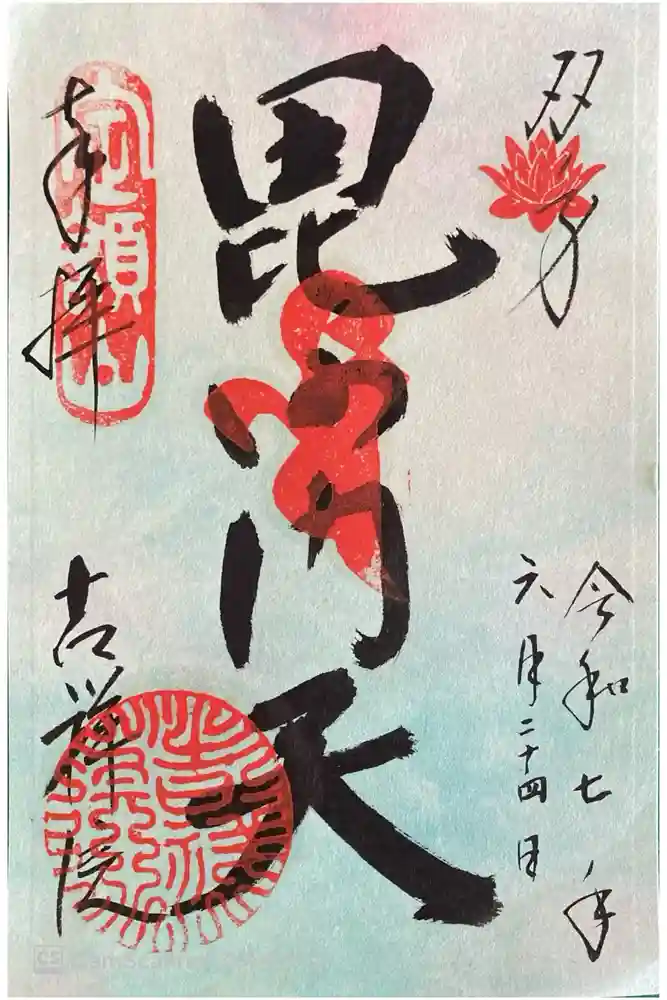 令和七年
六月二十四日
毘沙門天
奉拝
吉祥院
CS CamScanner